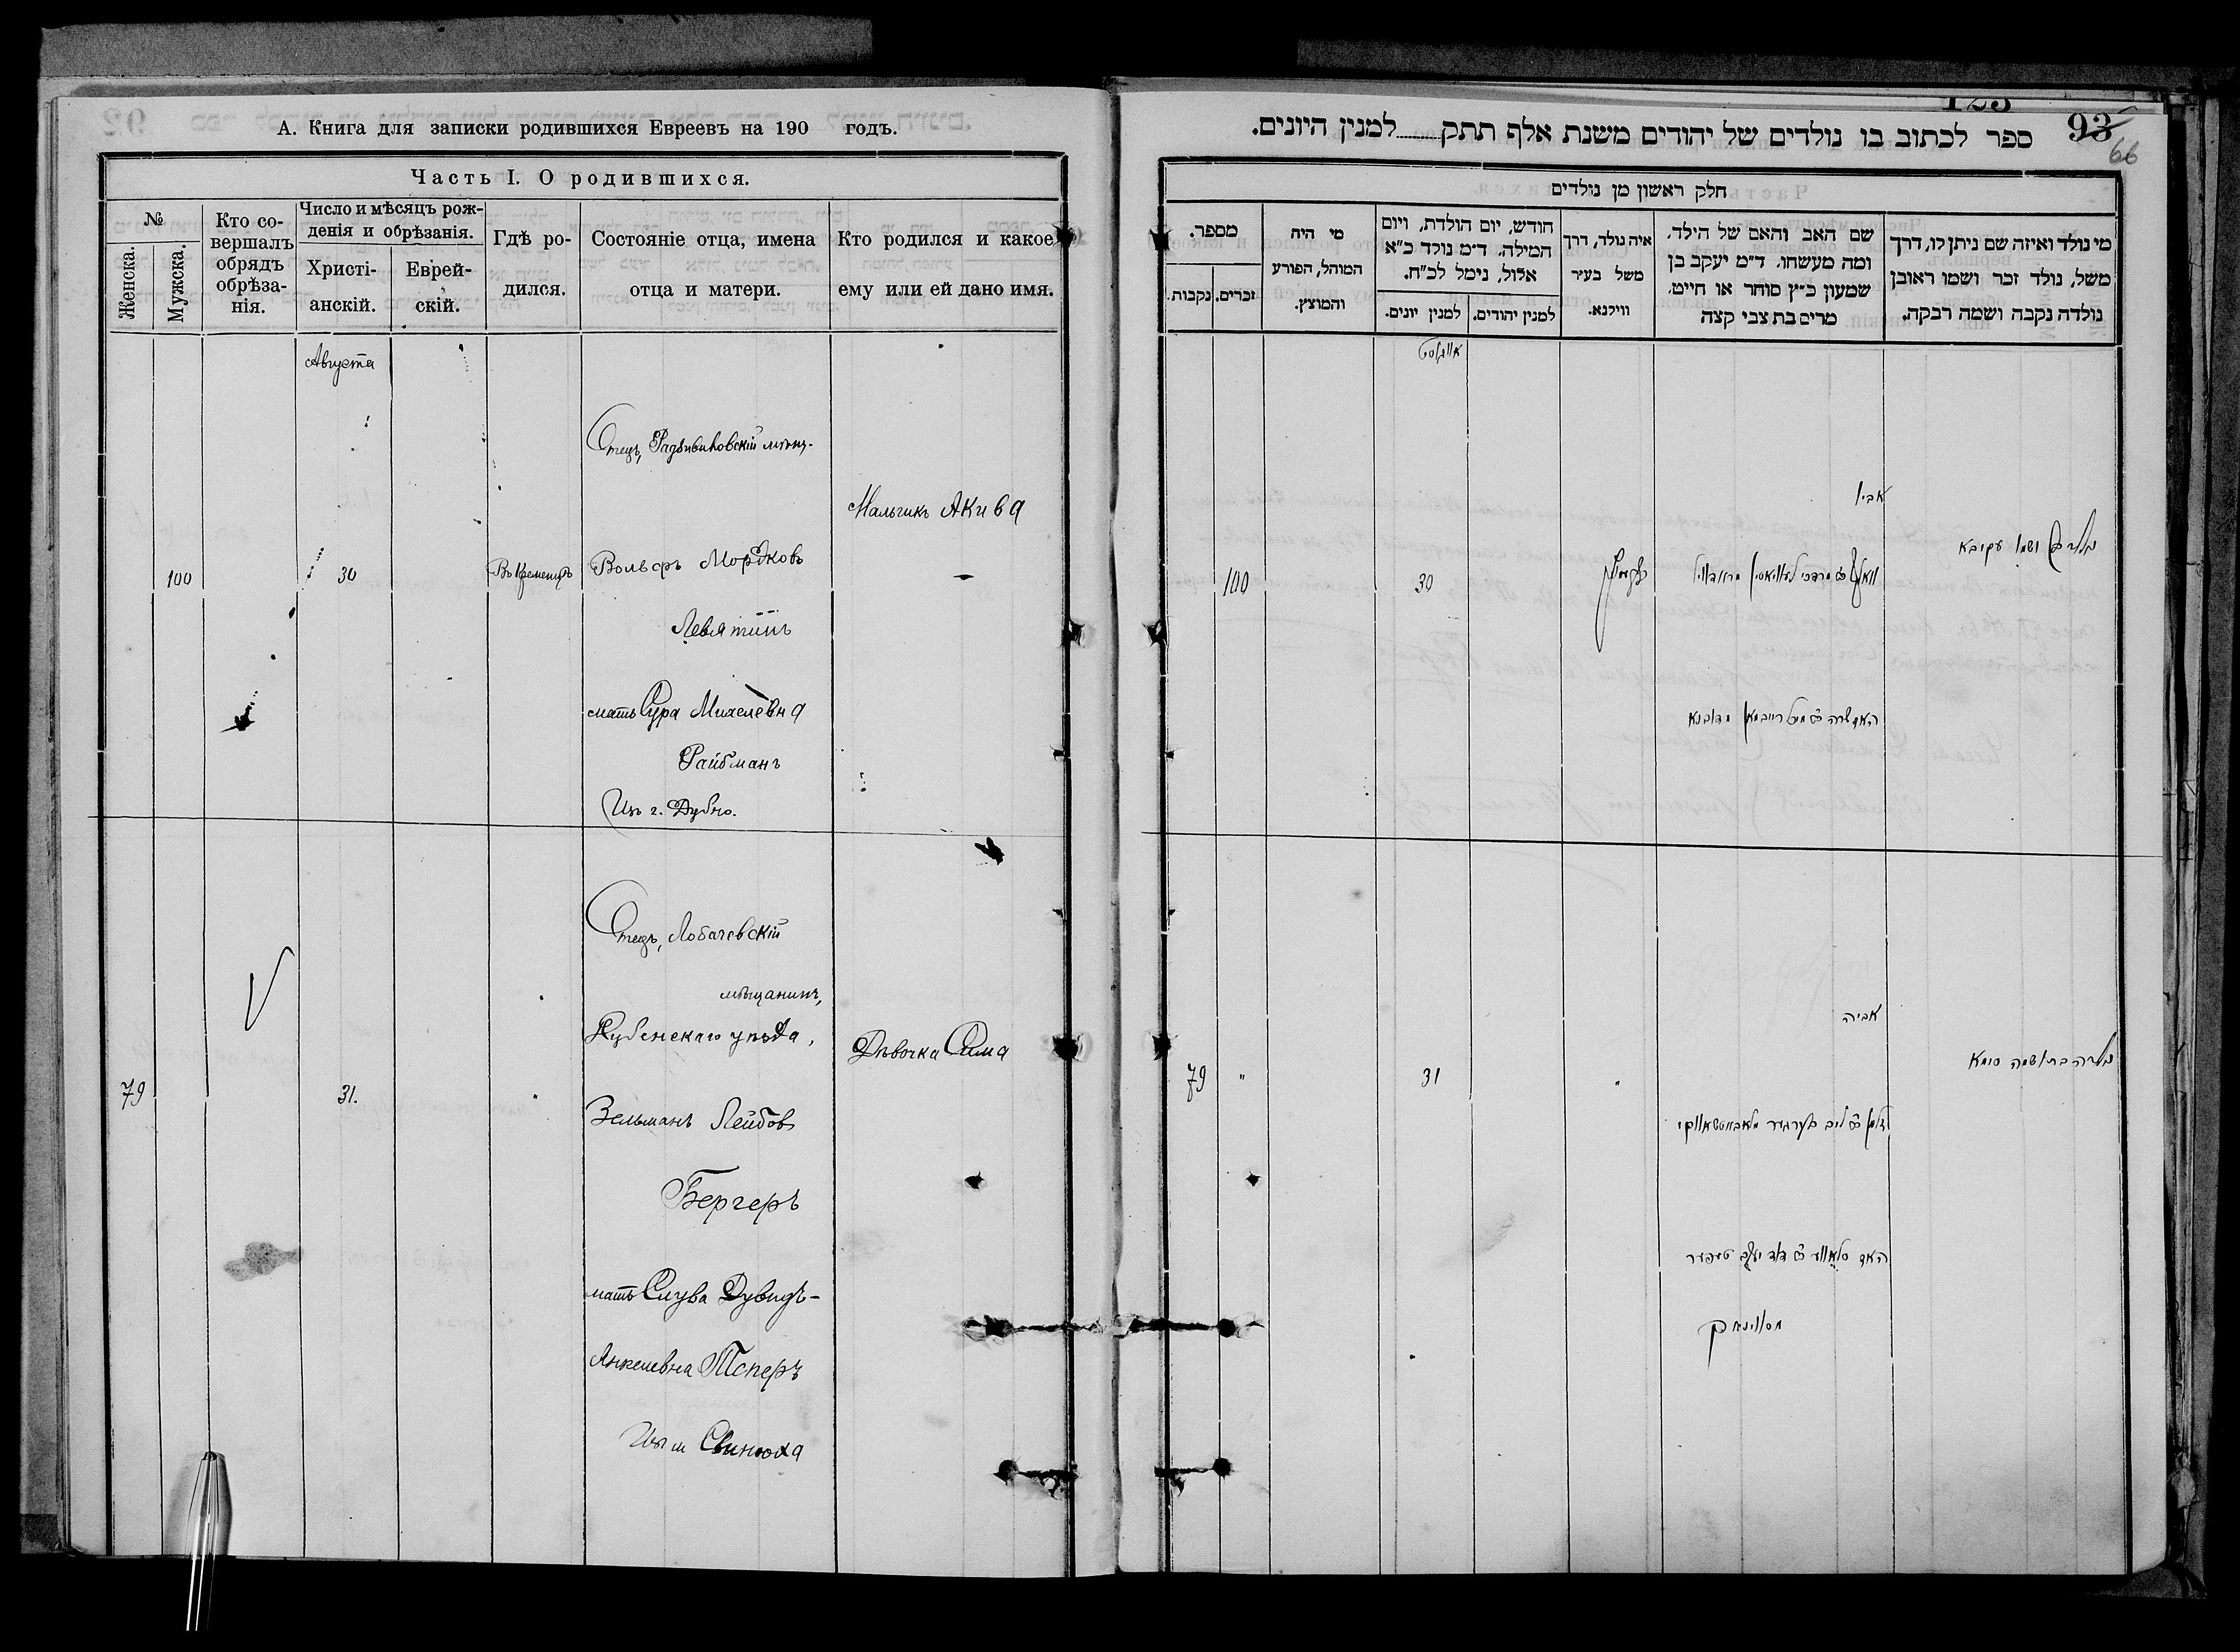 А. Книга для записки родившихся Евреевъ на 190 годъ.
Часть I. О родившихся.
№
Женска.
Мужска.
Кто со-
вершалъ
обрядъ
обрѣза-
нія.
Число и мѣсяцъ рож-
денія и обрѣзанія.
Христі-
анскій.
Еврей-
скій.
Гдѣ ро-
дился.
Состояніе отца, имена
отца и матери.
Кто родился и какое
ему или ей дано имя.
Августа
Отецъ, Радзивиловскій мѣщ.
Мальчикъ Акива
100
30
Въ Кременцѣ
Вольфъ Мордковъ
Левятинъ
мать Сура Михелевна
Файбманъ
Изъ г. Дубно.
Отецъ, Лобачевскій
мѣщанинъ,
Дубенскаго уѣзда,
Дѣвочка Сима
79
31.
Зельманъ Лейбовъ
Бергеръ
мать Слува Дувидъ-
Янкелевна Теперъ
Изъ м Свинюха
123
93
66
ספר לכתוב בו נולדים של יהודים משנת אלף תתק למנין היונים.
חלק ראשון מן נולדים
מספר.
זכרים.
נקבות.
מי היה
המוהל, הפורע
והמוצץ.
חודש, יום הולדת, ויום
המילה. ד״מ נולד כ״א
אלול, נימל לכ״ח.
למנין יונים.
למנין יהודים.
איה נולד, דרך
משל בעיר
ווילנא.
שם האב והאם של הילד.
ומה מעשהו. ד״מ יעקב בן
שמעון כ״ץ סוחר או חייט.
מרים בת צבי קצה
מי נולד ואיזה שם ניתן לו, דרך
משל, נולד זכר ושמו ראובן
נולדה נקבה ושמה רבקה.
אויגוסט
אביו
ושמו עקיבא
100
30
האם שרה
מדובנא
אביה
ושמה סימא
79
"
31
"
זלמן
ליב בערגער
האם
דוד יעקב טעפער